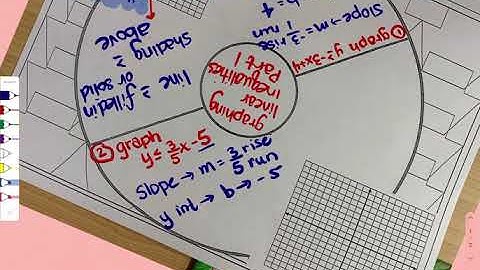 graphing
linear
inequalities
Part 1
① graph y ≥ -3x+4
slope → m = -3/1 rise/run
line ≥ filled in
or solid
≥
shading
above
② graph
y ≤ 3/5 x - 5
slope → m = 3/5 rise/run
y int → b → -5